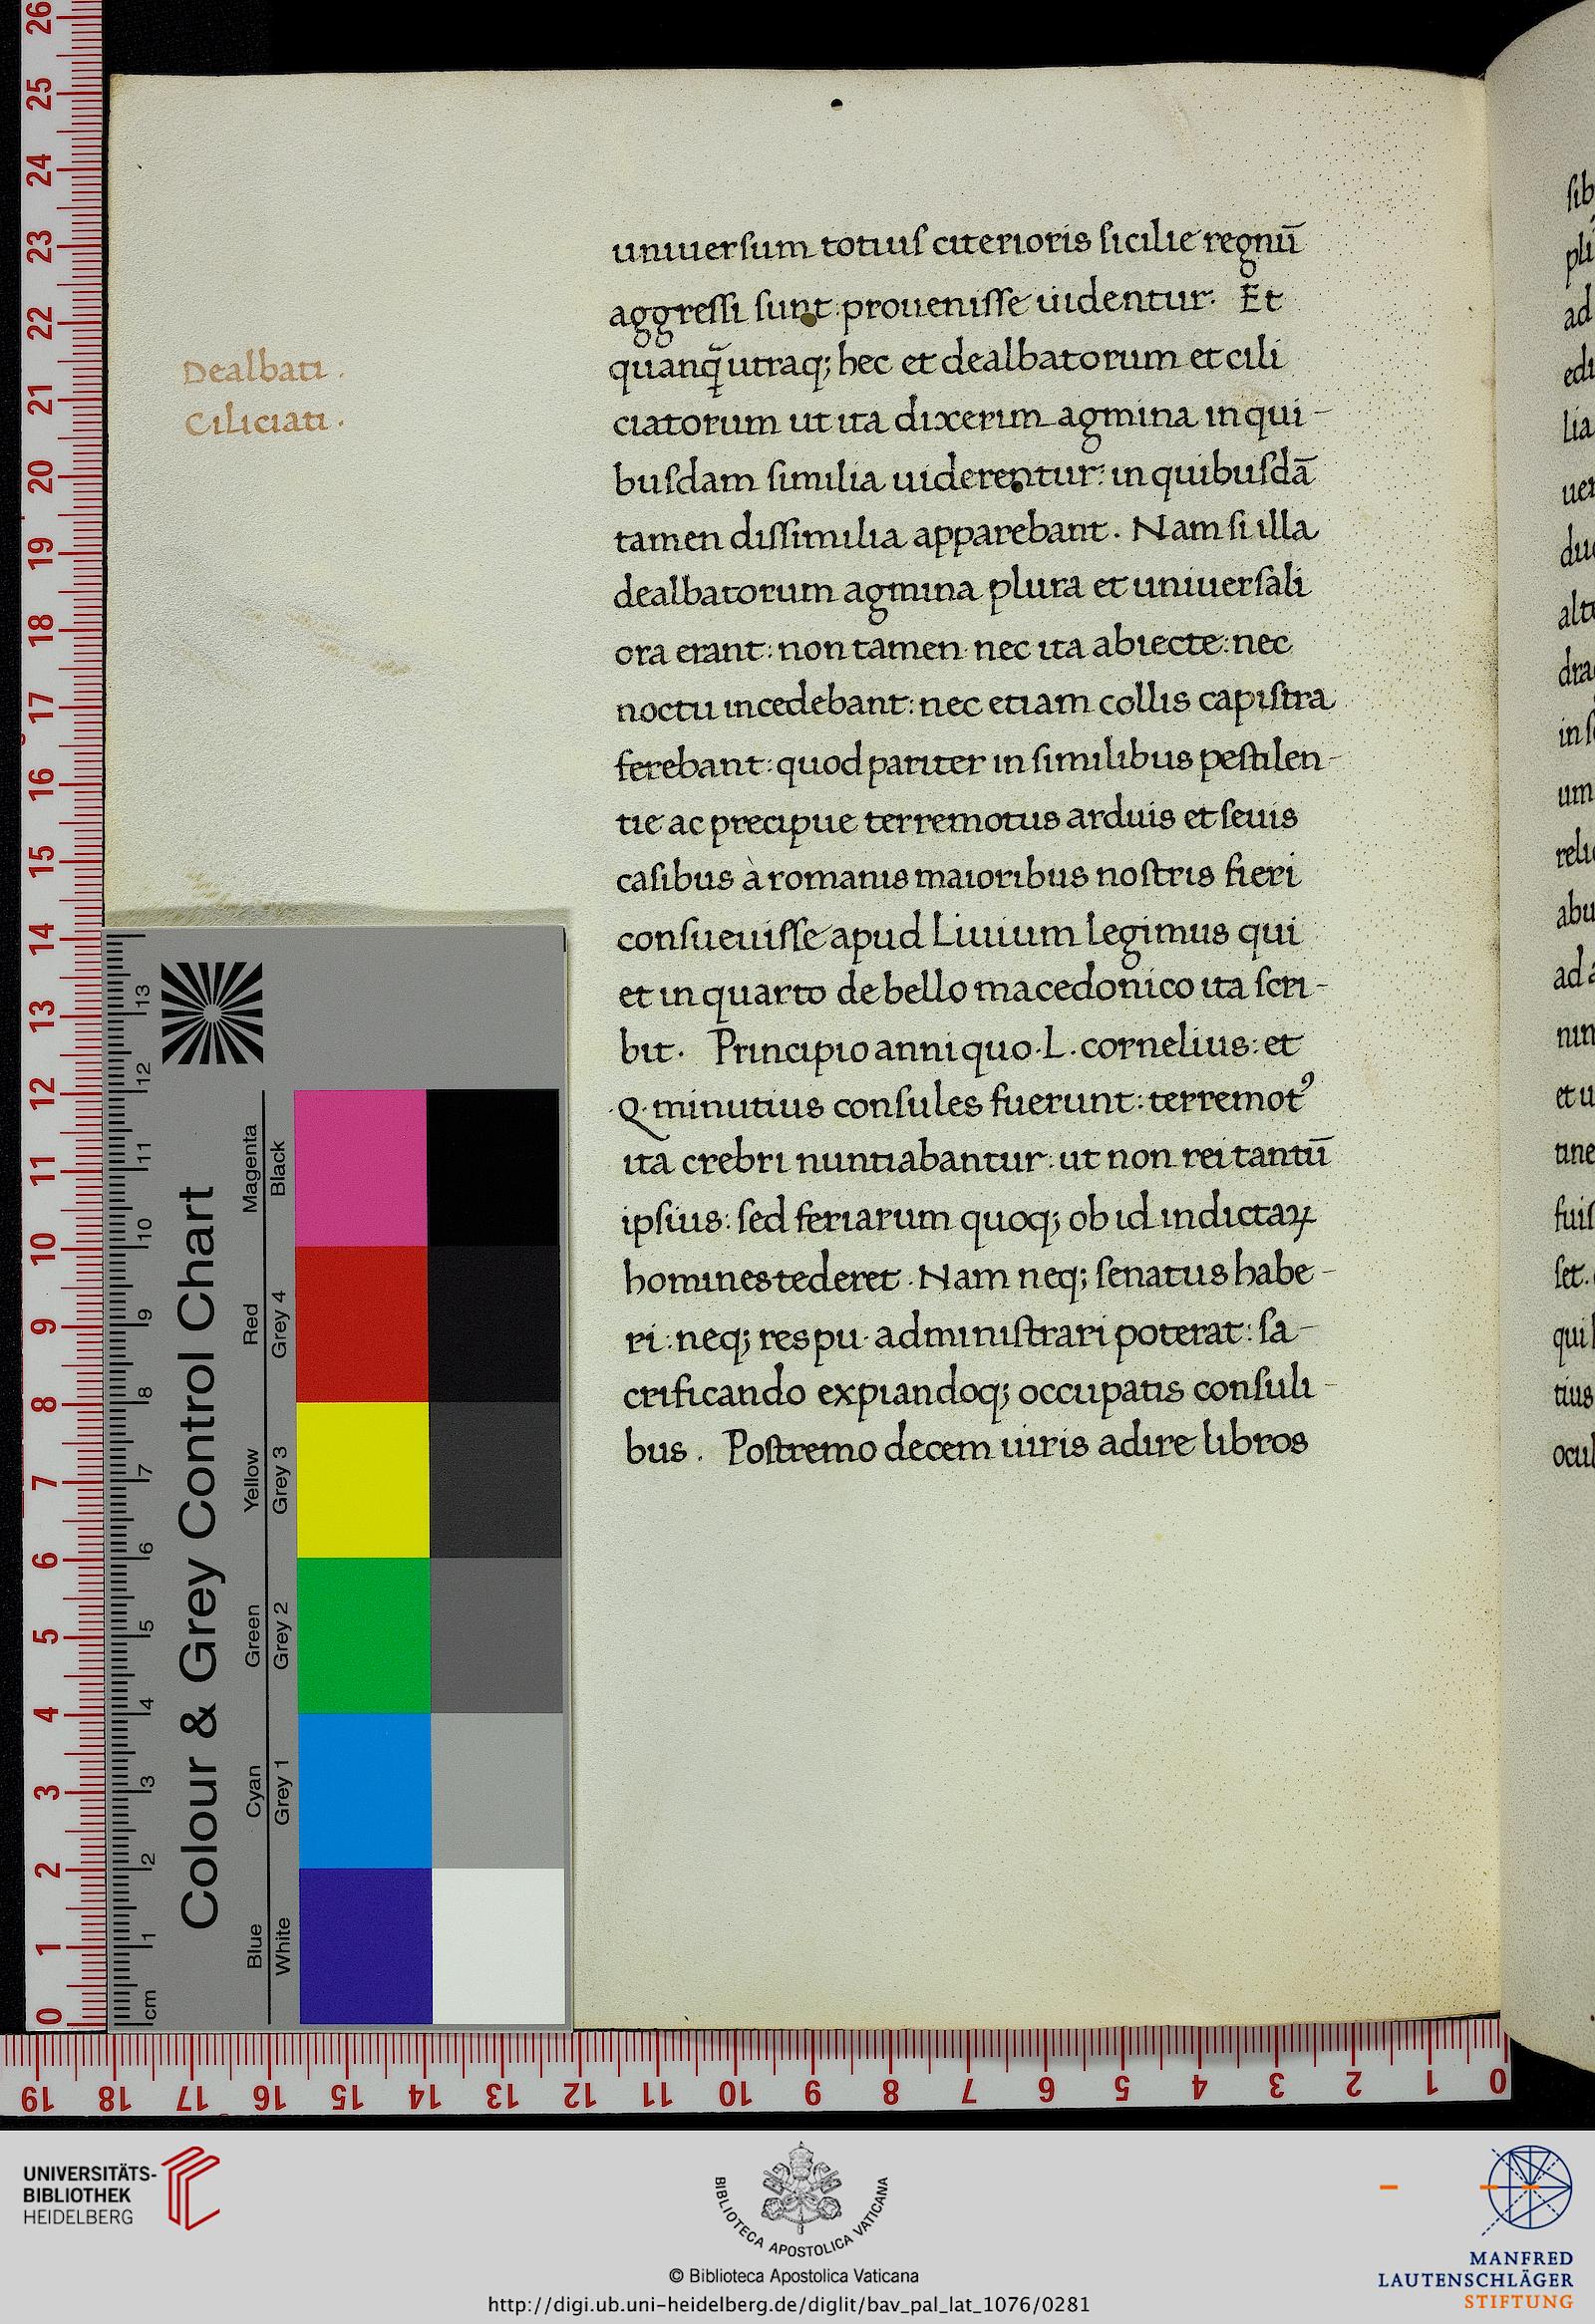 Dealbati .
Ciliciati .
uniuersum totius citerioris sicilie regnū
aggressi sunt: prouenisse uidentur. Et
quanq̄ utraq; hec et dealbatorum et cili
ciatorum ut ita dixerim agmina in qui-
busdam similia uiderentur: in quibusdā
tamen dissimilia apparebant. Nam si illa
dealbatorum agmina plura et uniuersali
ora erant: non tamen nec ita abiecte: nec
noctu incedebant: nec etiam collis capistra
ferebant: quod pariter in similibus pestilen-
tie ac precipue terremotus arduis et seuis
casibus à romanis maioribus nostris fieri
consueuisse apud Liuium legimus qui
et in quarto de bello macedonico ita scri-
bit. Principio anni quo .L. cornelius: et
.Q. minutius consules fuerunt: terremotꝰ
ita crebri nuntiabantur: ut non rei tantū
ipsius: sed feriarum quoq; ob id indictaꝝ
homines tederet. Nam neq; senatus habe-
ri: neq; res pu. administrari poterat: sa-
crificando expiandoq; occupatis consuli-
bus. Postremo decem uiris adire libros
Colour & Grey Control Chart
Magenta
Black
Red
Grey 4
Yellow
Grey 3
Green
Grey 2
Cyan
Grey 1
Blue
White
cm
UNIVERSITÄTS-
BIBLIOTHEK
HEIDELBERG
BIBLIOTECA APOSTOLICA VATICANA
© Biblioteca Apostolica Vaticana
http://digi.ub.uni-heidelberg.de/diglit/bav_pal_lat_1076/0281
MANFRED
LAUTENSCHLÄGER
STIFTUNG